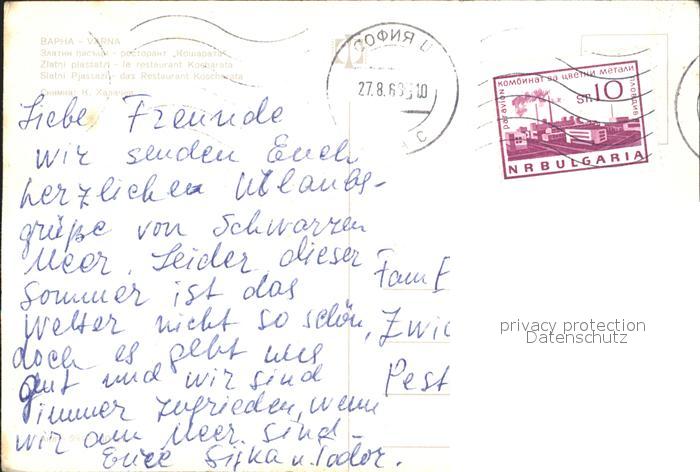 ВАРНА - VARNA
Златни пясъци - ресторант „Кошарата"
Zlatni piassatzi - le restaurant Kosharata
Slatni Pjassazi - das Restaurant Koscharata
Снимка: К.
СОФИЯ Ц
27.8.69 10
С
комбинат за цветни метали
par avion
пловдив
ST. 10
NR BULGARIA
Liebe Freunde
wir senden Euch
herzlichen Urlaubs-
grüße von Schwarzen
Meer. Leider dieser
Sommer ist das
Wetter nicht so schön,
doch es geht uns
gut und wir sind
immer zufrieden, wenn
wir am Meer sind -
Eure Sijka u. Todor.
Fam F
Zwic
Pest
privacy protection
Datenschutz